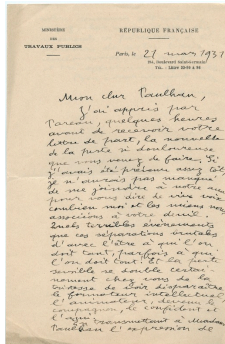 MINISTÈRE
DES
TRAVAUX PUBLICS
RÉPUBLIQUE FRANÇAISE
Paris, le 21 mars 1931
Mon cher Paulhan,
J'ai appris par
quelques heures
avant de recevoir votre
lettre de part, la nouvelle
de la perte si douloureuse
que vous venez de faire. Si
j'avais été prévenu assez tôt,
je n'aurais pas manqué
de me joindre à notre ami
pour vous dire de vive voix
combien moi et les miens nous
associons à votre deuil.
Quels terribles événements
que ces séparations brutales
d'avec l'être à qui l'on
doit tant, parfois à qui
l'on doit tout. Et la perte
sensible se double certai-
nement chez vous de la
tristesse de voir disparaître
le formateur intellectuel,
l'animateur, devenu le
compagnon, le confident et
l'ami.
transmettre à Madame
Paulhan l'expression de